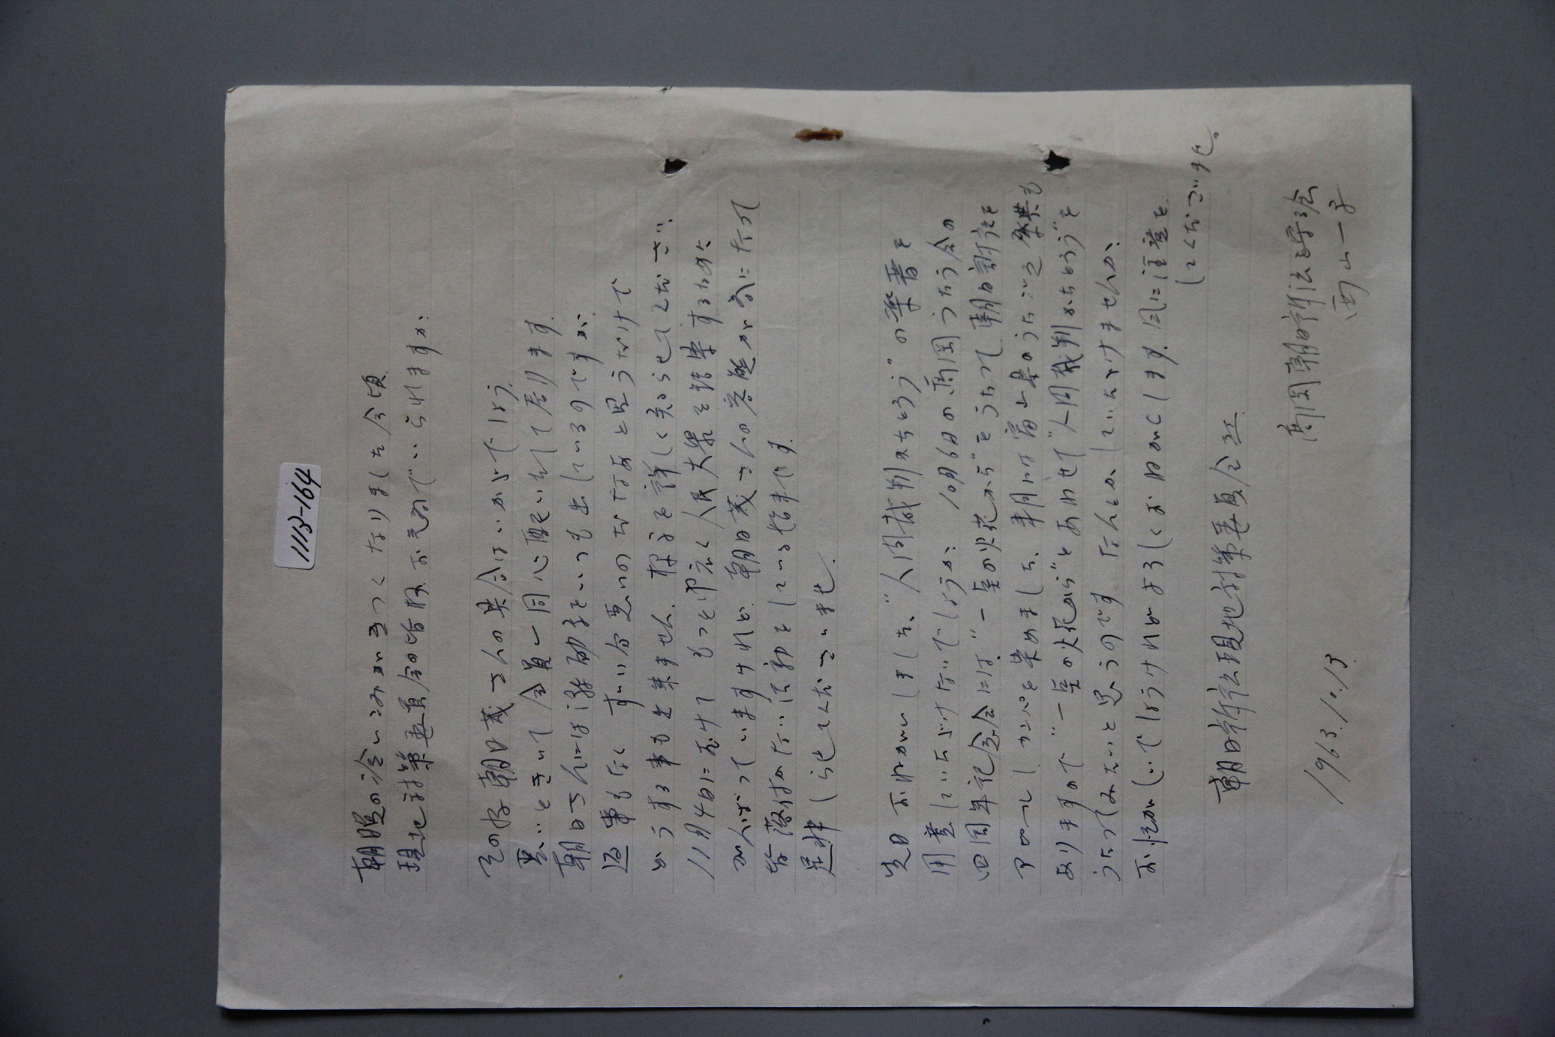 1113-164
朝晩の冷いこみがきつくなりました今頃
現地対策委員会の皆様お元気でいられますか.
その後朝日茂さんの具合はいかがでしょう.
悪いときいて会員一同心配いたして居ります.
朝日さんには機関誌をいつも出しているのですが.
返事もなく ずい分悪いのだなあと思うだけで
どうする事も出来ません. 様子を詳しく知らせてください.
11月4日にむけて もっと広く人民大衆を結集するために
がんばっていますけれど. 朝日茂さんの容態が気になって
皆落付かない活動をしている始末です.
是非しらせてくださいませ.
先日おねがいしました、"人間裁判かちとろう"の楽譜を
用意していただけないでしょうか. 10月6日の高岡うたう会の
四周年記念会には"一星の火花から"をうたって朝日訴訟を
アピールしカンパを集めました. 来月には富山県のうたごえ祭典も
ありますので"一星の火花から"とあわせて"人間裁判かちとろう"を
うたってみたいと思うのです なんとかしていただけませんか.
お忙がしいでしょうけれどよろしくおねがいします. 風に注意を
してくださいませ。
朝日訴訟現地対策委員会 江
高岡朝日訴訟を守る会
西山一子
1963.10.13.